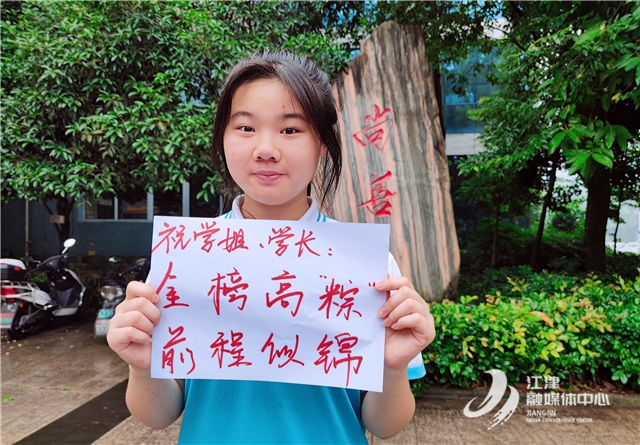 尚善
祝学姐、学长：
金榜高"粽"
前程似锦
江津
融媒体中心
JIANGJIN
MEDIA CONVERGENCE CENTER